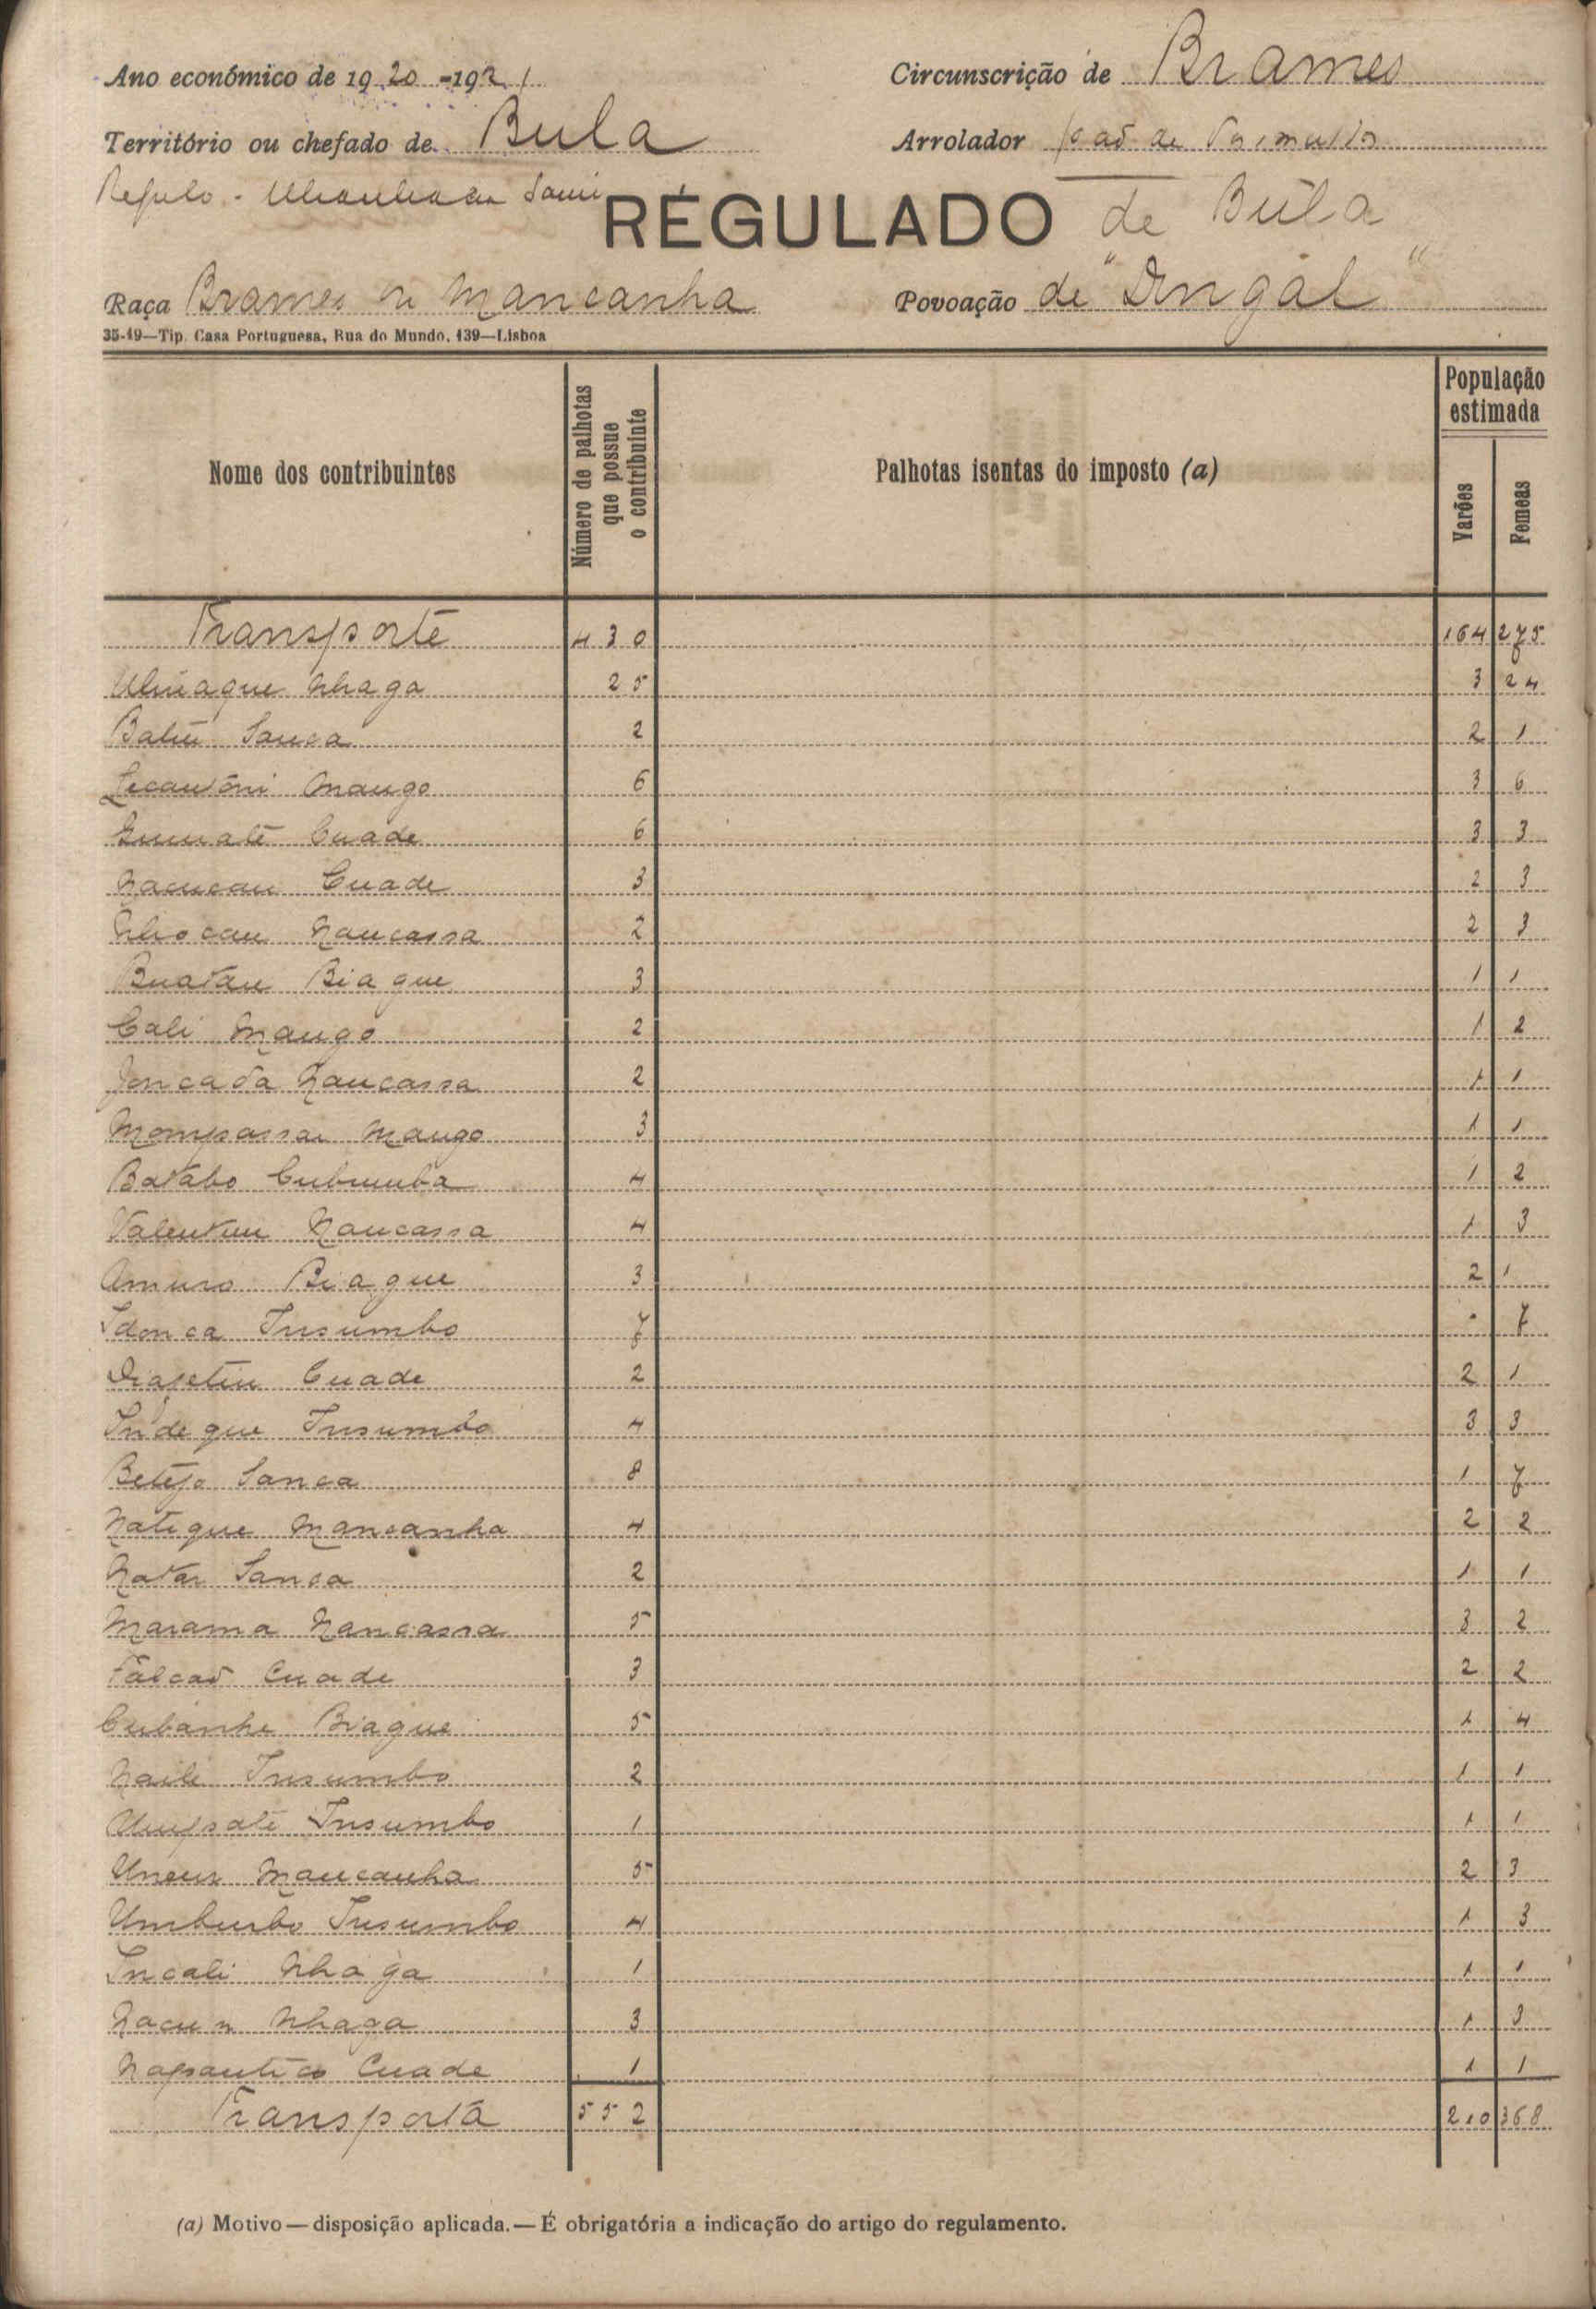 Ano económico de 1920-1921
Circunscrição de Brames
Território ou chefado de Bula
Arrolador João de
Regulo -
RÉGULADO de Bula
Raça Brames ou Mancanha
Povoação de "Dingal"
35-19—Tip. Casa Portuguesa, Rua do Mundo, 139—Lisboa
Nome dos contribuintes
Número de palhotas que possue o contribuinte
Palhotas isentas do imposto (a)
População estimada
Varões
Femeas
Transporte 430 164 275
Nhaga 25 3 24
Batiú Sanca 2 2 1
Mango 6 3 6
Cuade 6 3 3
Nacucau Cuade 3 2 3
Nhocau Naucassa 2 2 3
Buatau Biague 3 1 1
Cali Mango 2 1 2
Joncada Naucassa 2 1 1
Mompassau Mango 3 1 1
Batabo Cubumba 4 1 2
Valentim Naucassa 4 1 3
Amuro Biague 3 2 1
Idonca Insumbo 7 - 7
Cuade 2 2 1
Indeque Insumbo 4 3 3
Betejo Sanca 8 1 7
Natique Mancanha 4 2 2
Natar Sanca 2 1 1
Marama Nancassa 5 3 2
Falcaõ Cuade 3 2 2
Cubanhe Biague 5 1 4
Naili Insumbo 2 1 1
Insumbo 1 1 1
Mancanha 5 2 3
Umburbo Insumbo 4 1 3
Incali Nhaga 1 1 1
Nacun Nhaga 3 1 3
Cuade 1 1 1
Transporta 552 210 368
(a) Motivo—disposição aplicada.—É obrigatória a indicação do artigo do regulamento.